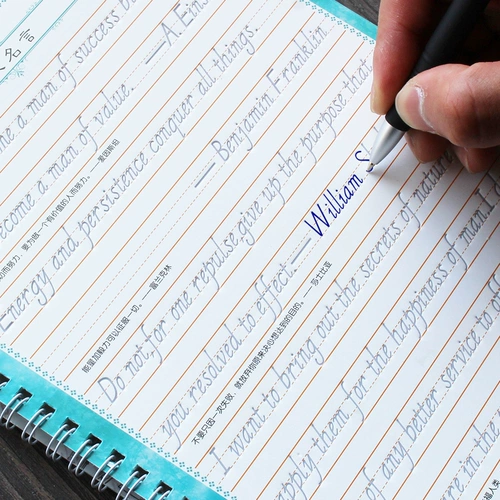 名言
me a man of success b
—A. Eins
ecome a man of value.
爱因斯坦
功而努力，要为做一个有价值的人而努力。
Energy and persistence conquer all things.
— Benjamin Franklin
能量加毅力可以征服一切。——富兰克林
Do not, for one repulse, give up the purpose that
you resolved to effect. — William S
不要只因一次失败，就放弃你原来决心想达到的目的。——莎士比亚
I want to bring out the secrets of nature
apply them for the happiness of man. I
of any better service to off